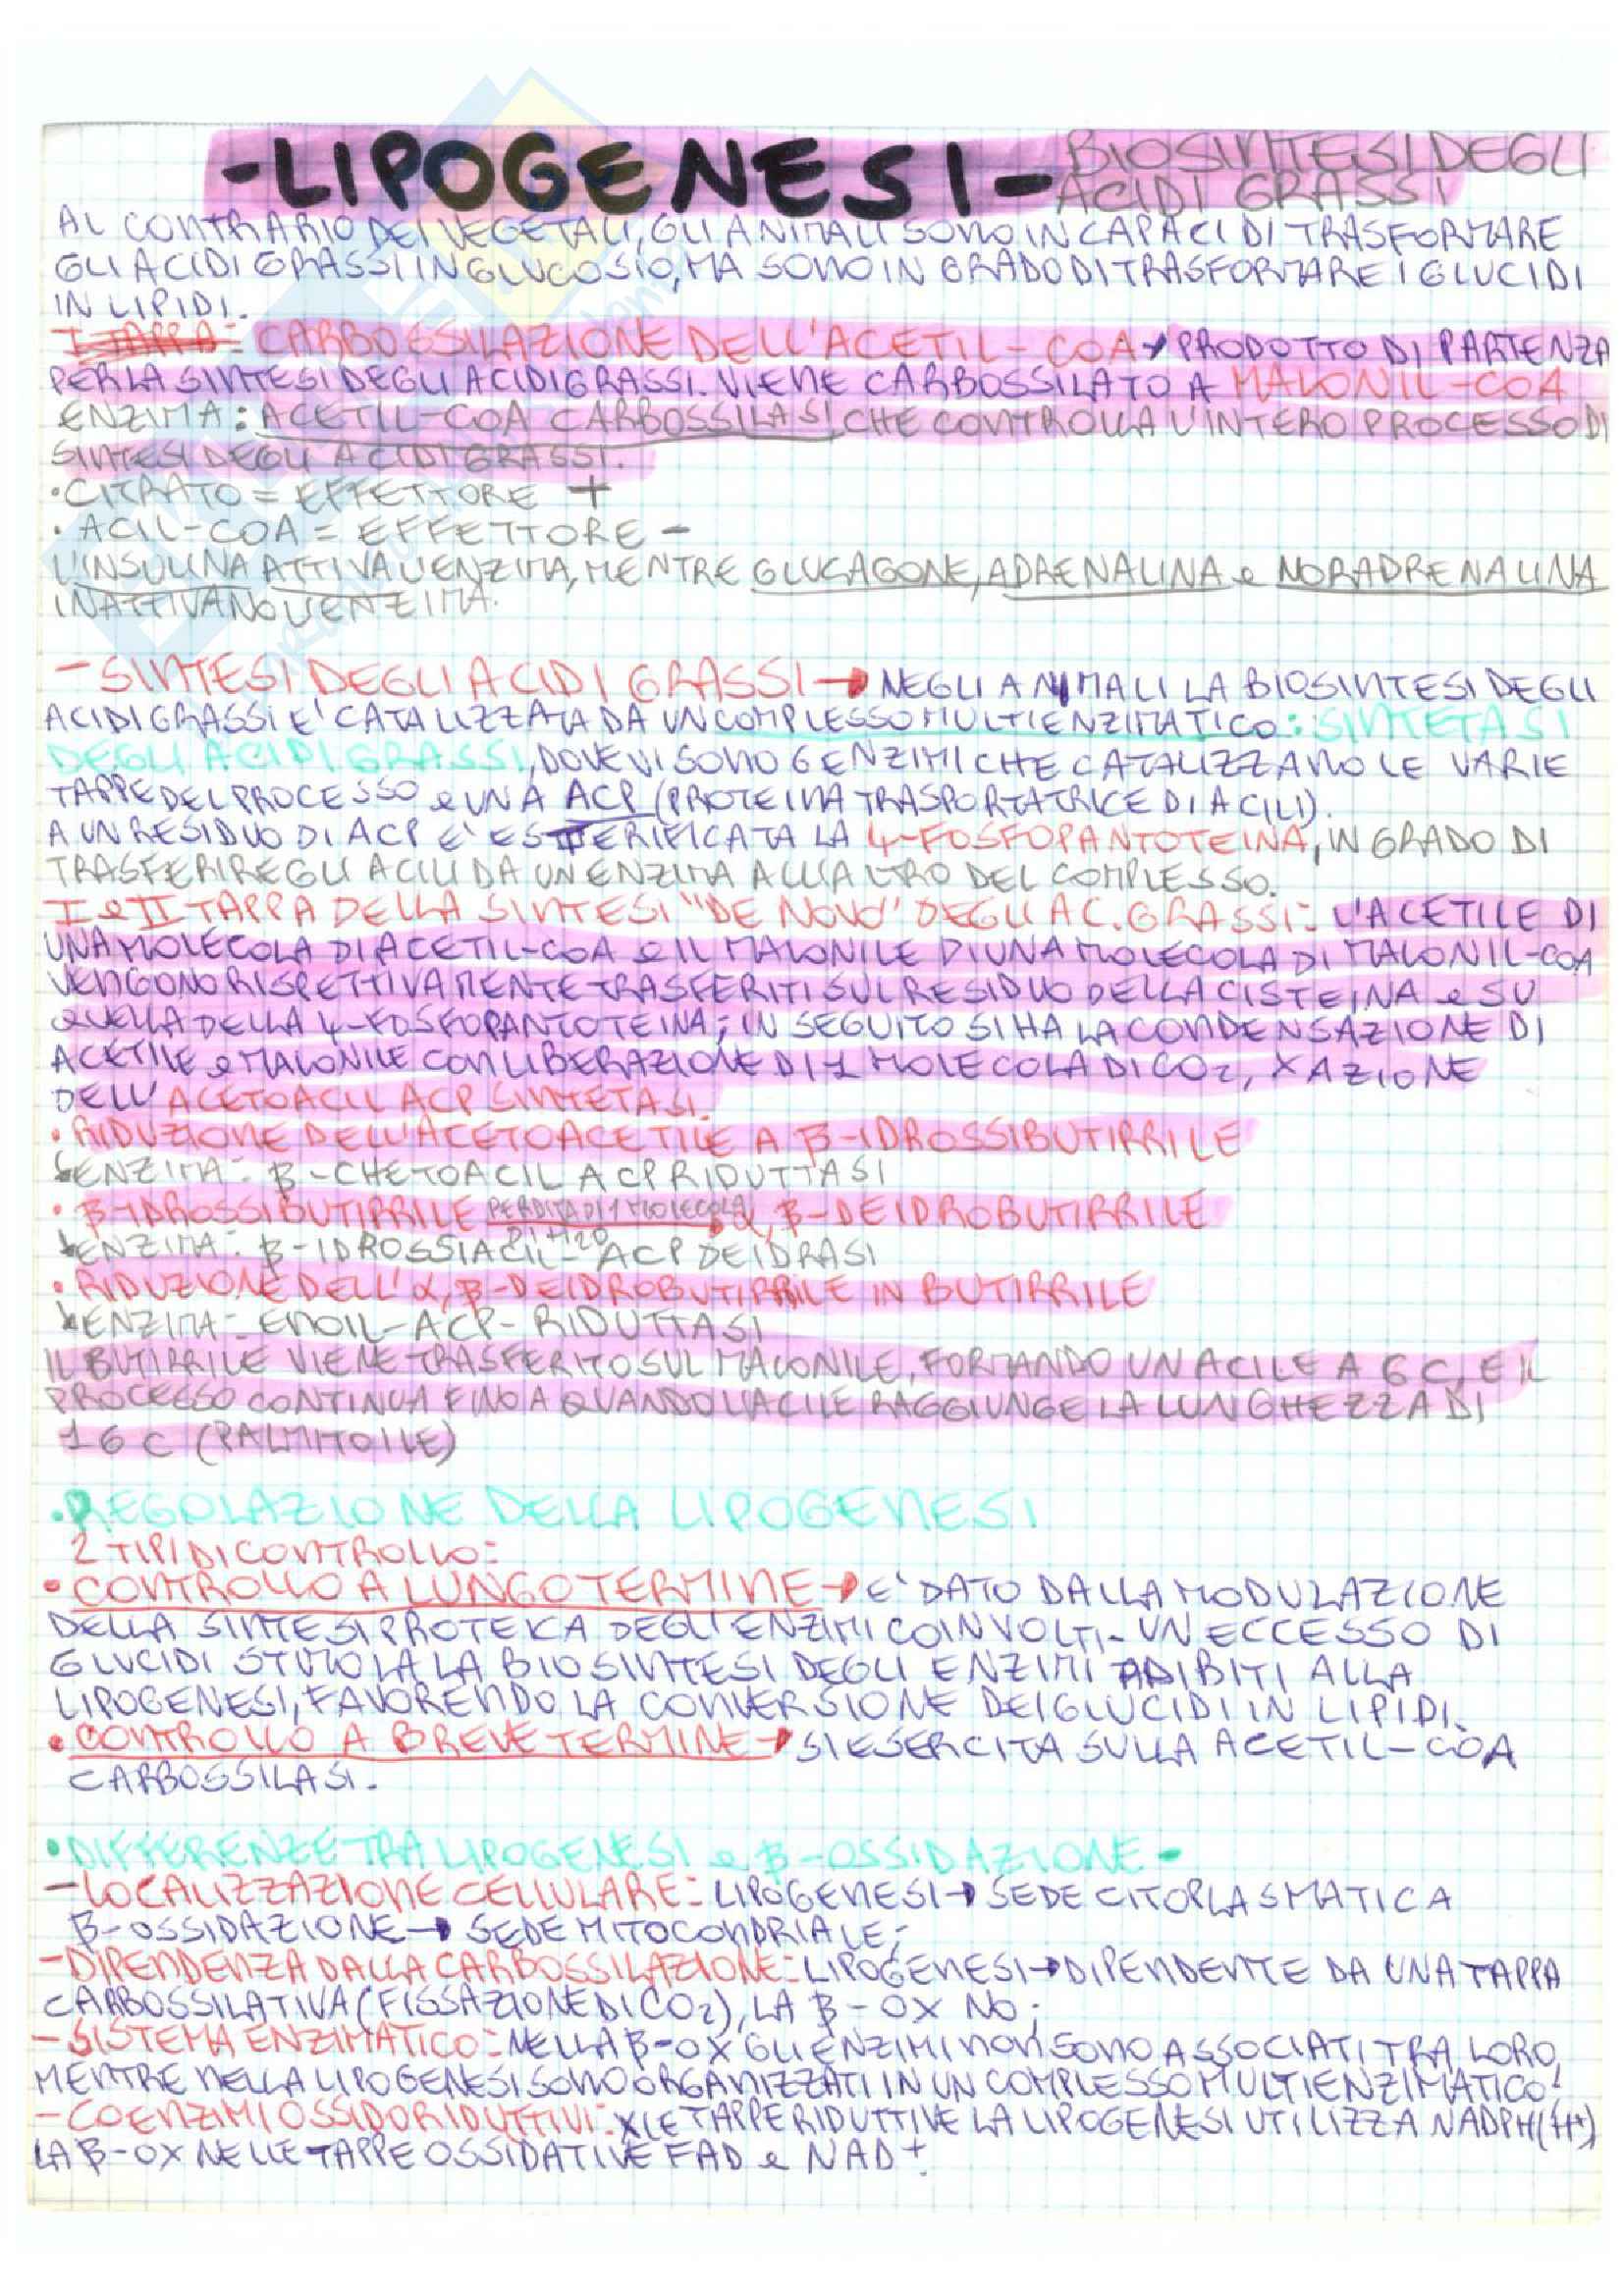 -LIPOGENESI- BIOSINTESI DEGLI
ACIDI GRASSI
AL CONTRARIO DEI VEGETALI, GLI ANIMALI SONO INCAPACI DI TRASFORMARE
GLI ACIDI GRASSI IN GLUCOSIO, MA SONO IN GRADO DI TRASFORMARE I GLUCIDI
IN LIPIDI.
I TAPPA: CARBOSSILAZIONE DELL'ACETIL-COA → PRODOTTO DI PARTENZA
PER LA SINTESI DEGLI ACIDI GRASSI. VIENE CARBOSSILATO A MALONIL-COA
ENZIMA: ACETIL-COA CARBOSSILASI, CHE CONTROLLA L'INTERO PROCESSO DI
SINTESI DEGLI ACIDI GRASSI.
• CITRATO = EFFETTORE +
• ACIL-COA = EFFETTORE -
L'INSULINA ATTIVA L'ENZIMA, MENTRE GLUCAGONE, ADRENALINA e NORADRENALINA
INATTIVANO L'ENZIMA.
- SINTESI DEGLI ACIDI GRASSI → NEGLI ANIMALI LA BIOSINTESI DEGLI
ACIDI GRASSI E' CATALIZZATA DA UN COMPLESSO MULTIENZIMATICO: SINTETASI
DEGLI ACIDI GRASSI, DOVE VI SONO 6 ENZIMI CHE CATALIZZANO LE VARIE
TAPPE DEL PROCESSO e UNA ACP (PROTEINA TRASPORTATRICE DI ACILI).
A UN RESIDUO DI ACP E' ESTERIFICATA LA 4-FOSFOPANTOTEINA, IN GRADO DI
TRASFERIRE GLI ACILI DA UN ENZIMA ALL'ALTRO DEL COMPLESSO.
I e II TAPPA DELLA SINTESI "DE NOVO" DEGLI AC. GRASSI: L'ACETILE DI
UNA MOLECOLA DI ACETIL-COA e IL MALONILE DI UNA MOLECOLA DI MALONIL-COA
VENGONO RISPETTIVAMENTE TRASFERITI SUL RESIDUO DELLA CISTEINA e SU
QUELLA DELLA 4-FOSFOPANTOTEINA; IN SEGUITO SI HA LA CONDENSAZIONE DI
ACETILE e MALONILE CON LIBERAZIONE DI 1 MOLECOLA DI CO2, X AZIONE
DELL'ACETOACIL ACP SINTETASI.
• RIDUZIONE DELL'ACETOACETILE A β-IDROSSIBUTIRRILE
↳ ENZIMA: β-CHETOACIL ACP RIDUTTASI
• β-IDROSSIBUTIRRILE PERDITA DI 1 MOLECOLA DI H2O → α, β-DEIDROBUTIRRILE
↳ ENZIMA: β-IDROSSIACIL-ACP DEIDRASI
• RIDUZIONE DELL'α, β-DEIDROBUTIRRILE IN BUTIRRILE
↳ ENZIMA: ENOIL-ACP-RIDUTTASI
IL BUTIRRILE VIENE TRASFERITO SUL MALONILE, FORMANDO UN ACILE A 6 C, E IL
PROCESSO CONTINUA FINO A QUANDO L'ACILE RAGGIUNGE LA LUNGHEZZA DI
16 C (PALMITOILE)
• REGOLAZIONE DELLA LIPOGENESI
2 TIPI DI CONTROLLO:
• CONTROLLO A LUNGO TERMINE → E' DATO DALLA MODULAZIONE
DELLA SINTESI PROTEICA DEGLI ENZIMI COINVOLTI. UN ECCESSO DI
GLUCIDI STIMOLA LA BIOSINTESI DEGLI ENZIMI ADIBITI ALLA
LIPOGENESI, FAVORENDO LA CONVERSIONE DEI GLUCIDI IN LIPIDI.
• CONTROLLO A BREVE TERMINE → SI ESERCITA SULLA ACETIL-COA
CARBOSSILASI.
• DIFFERENZE TRA LIPOGENESI e β-OSSIDAZIONE •
- LOCALIZZAZIONE CELLULARE: LIPOGENESI → SEDE CITOPLASMATICA
β-OSSIDAZIONE → SEDE MITOCONDRIALE;
- DIPENDENZA DALLA CARBOSSILAZIONE: LIPOGENESI → DIPENDENTE DA UNA TAPPA
CARBOSSILATIVA (FISSAZIONE DI CO2), LA β-OX NO;
- SISTEMA ENZIMATICO: NELLA β-OX GLI ENZIMI NON SONO ASSOCIATI TRA LORO,
MENTRE NELLA LIPOGENESI SONO ORGANIZZATI IN UN COMPLESSO MULTIENZIMATICO;
- COENZIMI OSSIDORIDUTTIVI: X LE TAPPE RIDUTTIVE LA LIPOGENESI UTILIZZA NADPH(H+)
LA β-OX NELLE TAPPE OSSIDATIVE FAD e NAD+.